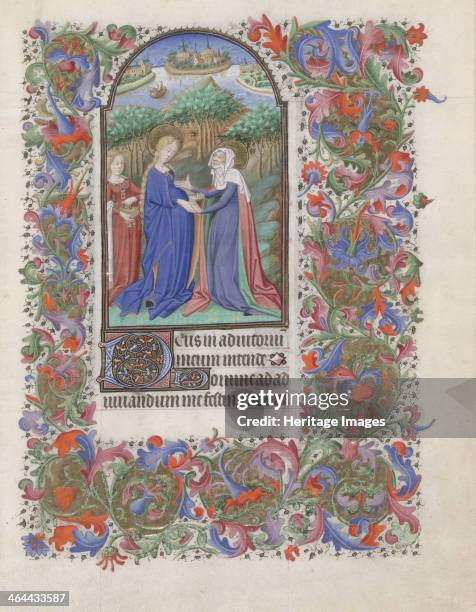 Deus in adiutoriu
meum intende
Domine ad ad
iuuandum me festin
gettyimages
Credit: Heritage Images
464433587